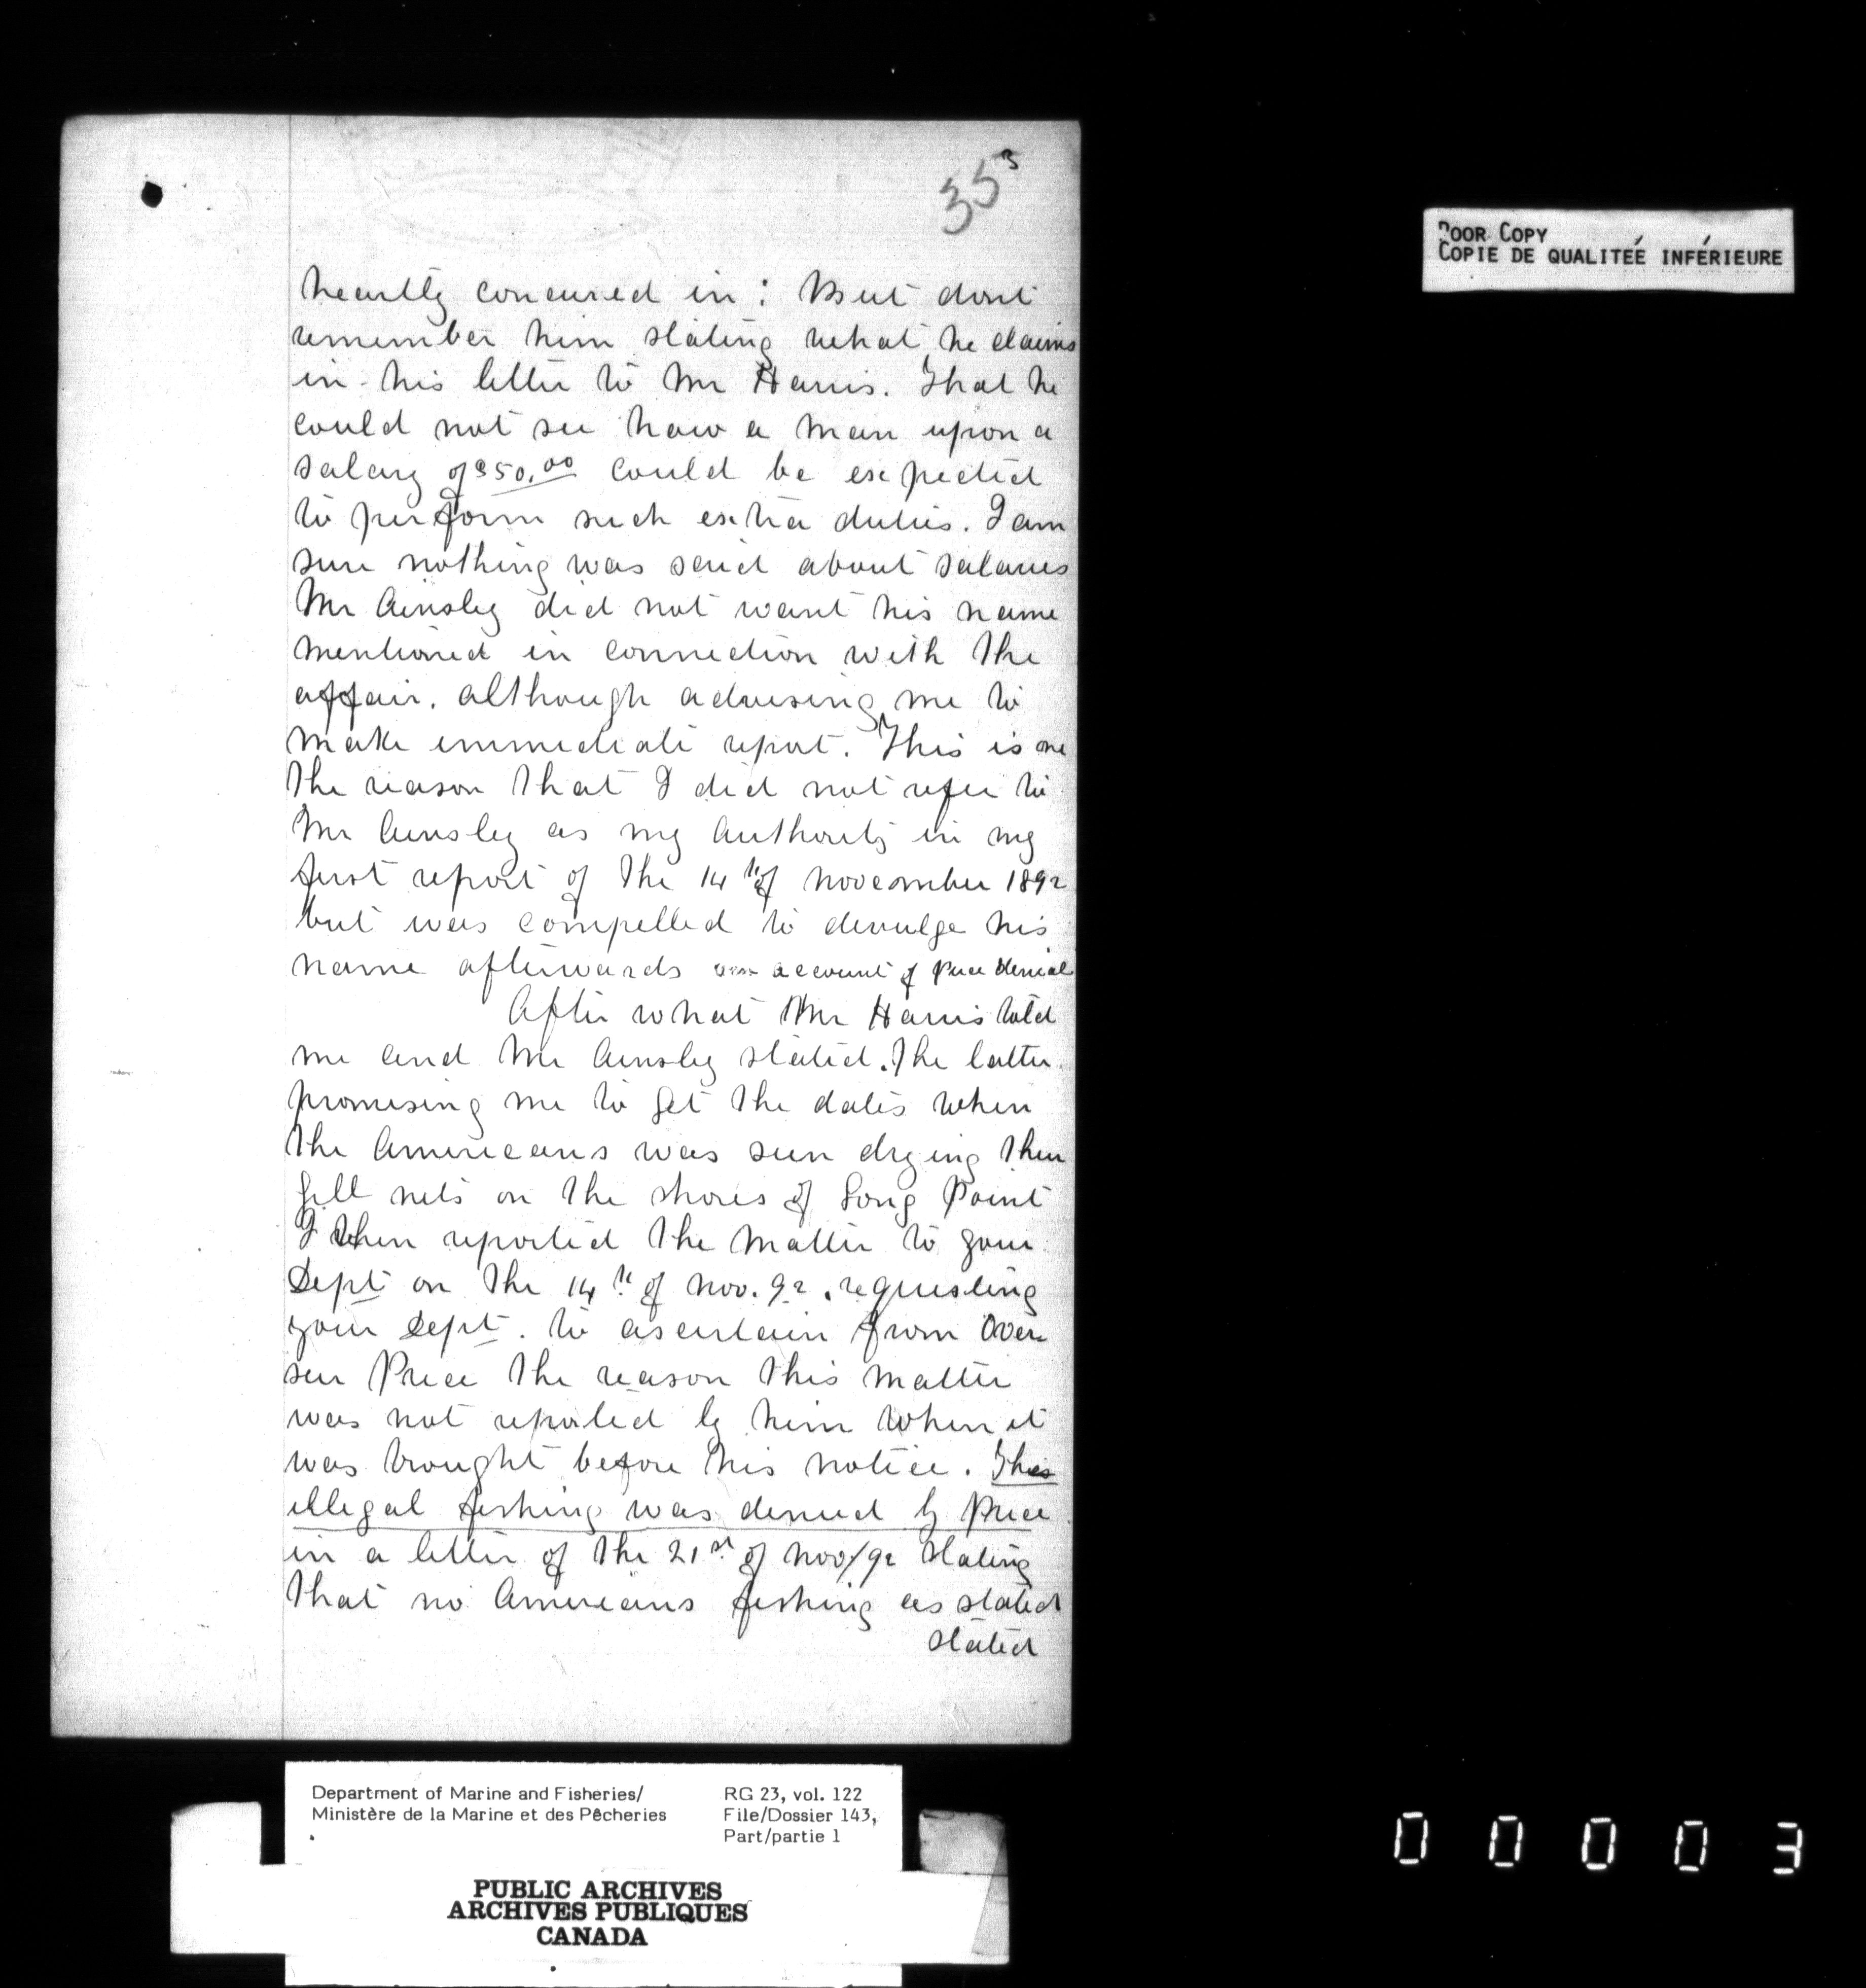 35 3
POOR COPY
COPIE DE QUALITÉE INFÉRIEURE
heartly concured in: But dont
remember him stating what he claims
in his letter to Mr Harris. That he
could not see how a man upon a
salary of $50.00 could be expected
to perform such extra duties. I am
sure nothing was said about salaries
Mr Ainsley did not want his name
mentioned in connection with the
affair. although advising me to
make immediate report. This is one
the reason that I did not refer to
Mr Ainsley as my authority in my
first report of the 14th of November 1892
but was compelled to devulge his
name afterwards on account of Price denial
After what Mr Harris told
me and Mr Ainsley stated. The latter
promising me to get the dates when
the Americans was seen drying their
gill nets on the shores of Long Point
I then reported the matter to your
Dept on the 14th of Nov. 92. requesting
your Dept. to ascertain from Over
seer Price the reason this matter
was not reported by him when it
was brought before his notice. This
illegal fishing was denied by Price
in a letter of the 21st of Nov/92 stating
that no Americans fishing as stated
stated
Department of Marine and Fisheries/ RG 23, vol. 122
Ministère de la Marine et des Pêcheries File/Dossier 143,
Part/partie 1
PUBLIC ARCHIVES
ARCHIVES PUBLIQUES
CANADA
00003